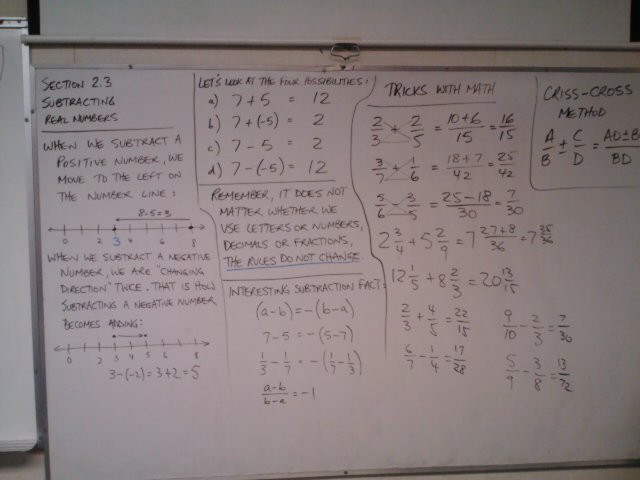 SECTION 2.3
SUBTRACTING
REAL NUMBERS
WHEN WE SUBTRACT A
POSITIVE NUMBER, WE
MOVE TO THE LEFT ON
THE NUMBER LINE:
8-5=3
0 2 3 4 6 8
WHEN WE SUBTRACT A NEGATIVE
NUMBER, WE ARE "CHANGING
DIRECTION" TWICE. THAT IS HOW
SUBTRACTING A NEGATIVE NUMBER
BECOMES ADDING:
0 2 3 4 5 6 8
3-(-2)=3+2=5
LET'S LOOK AT THE FOUR POSSIBILITIES:
a) 7+5 = 12
b) 7+(-5) = 2
c) 7-5 = 2
d) 7-(-5) = 12
REMEMBER, IT DOES NOT
MATTER WHETHER WE
USE LETTERS OR NUMBERS,
DECIMALS OR FRACTIONS,
THE RULES DO NOT CHANGE.
INTERESTING SUBTRACTION FACT:
(a-b)=-(b-a)
7-5 = -(5-7)
1/3 - 1/7 = -(1/7 - 1/3)
a-b/b-a = -1
TRICKS WITH MATH
2/3 + 2/5 = 10+6/15 = 16/15
3/7 + 1/6 = 18+7/42 = 25/42
5/6 - 3/5 = 25-18/30 = 7/30
2 3/4 + 5 2/9 = 7 27+8/36 = 7 35/36
12 1/5 + 8 2/3 = 20 13/15
2/3 + 4/5 = 22/15
6/7 - 1/4 = 17/28
9/10 - 2/3 = 7/30
5/9 - 3/8 = 13/72
CRISS-CROSS
METHOD
A/B ± C/D = AD±B/BD